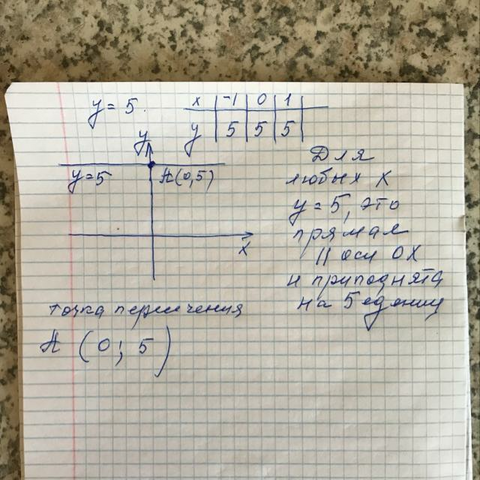 y = 5.
x | -1 | 0 | 1 |
y | 5 | 5 | 5 |
y
y = 5
A(0,5)
x
Для
любых х
y = 5, это
прямая
|| оси ОХ
и приподнята
на 5 единиц
точка пересечения
A (0; 5)